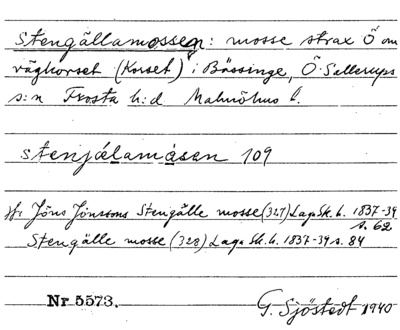 Stengällamossen: mosse strax Ö om
vägkorset (Korset) i Bässinge, Ö. Sallerups
s:n Frosta h:d Malmöhus l.
stenjälamåsen 109
Jfr Jöns Jönssons Stengälle mosse (327) Laga Sk. h. 1837-39
s. 62
Stengälle mosse (328) Laga Sk. h. 1837-39 s. 84
Nr 5573.
G. Sjöstedt 1940